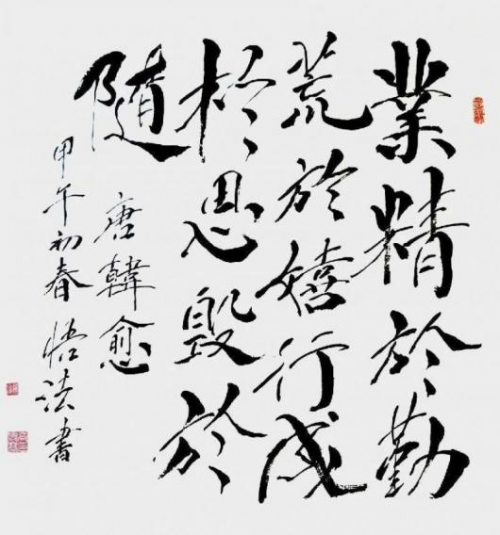 業精於勤
荒於嬉行成
於思毀於
隨
唐韓愈
甲午初春悟法書